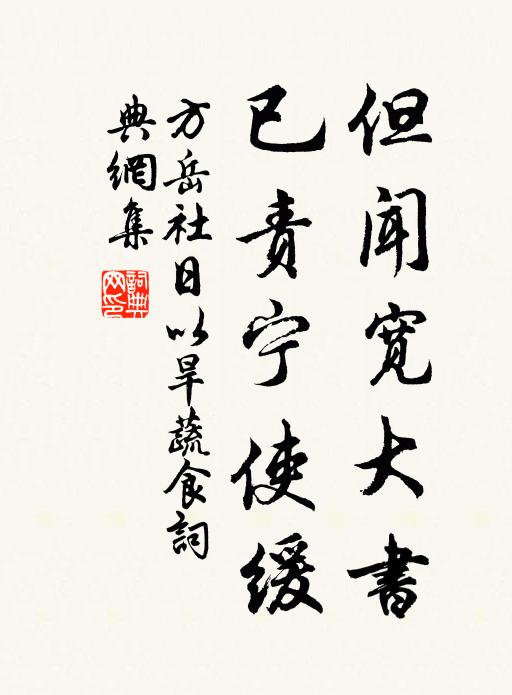 但聞寬大書
已責宁使緩
方岳社日以旱蔬食詞
典網集
詞典網印